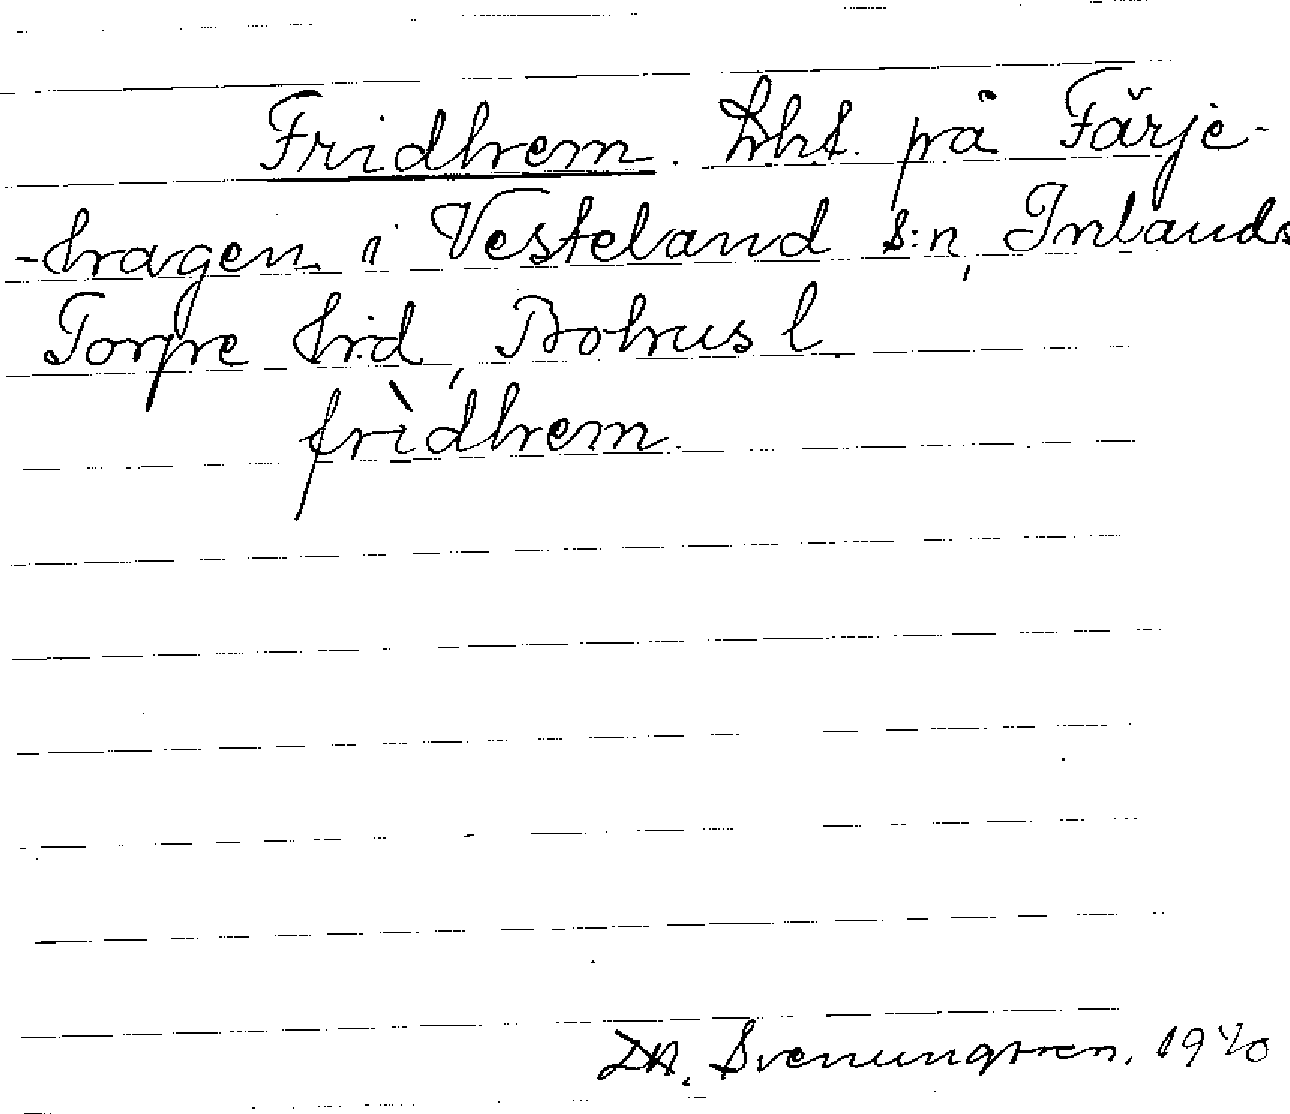 Fridhem. Lht. på Färje-
-hagen i Vesteland s:n, Inlands
Torpe hd, Bohus l.
frìdhem.
Svenungsson. 1940